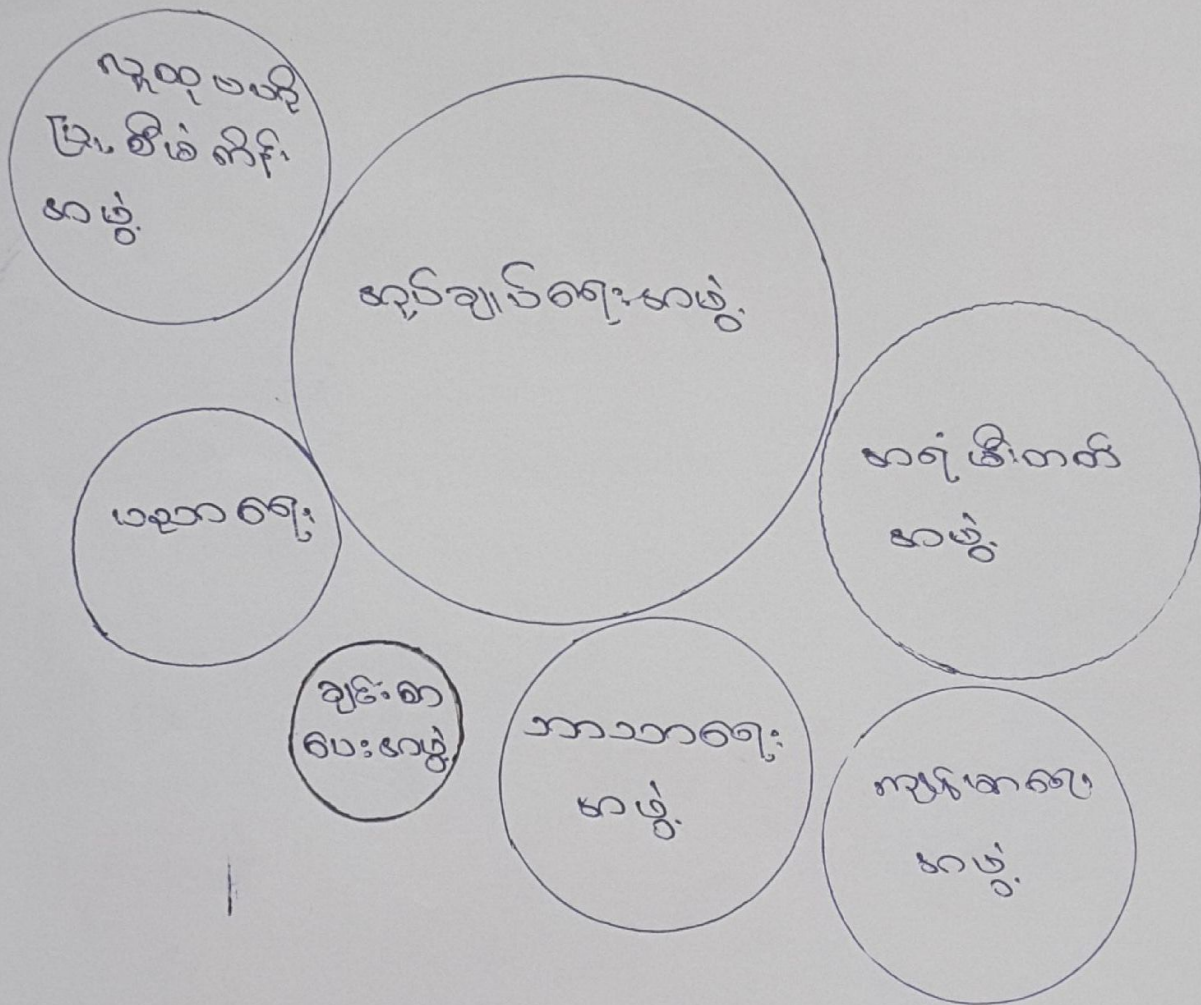 လူထုဗဟို
ပြု စီမံကိန်း
အဖွဲ့
အုပ်ချုပ်ရေးအဖွဲ့
အရံမီးသတ်
အဖွဲ့
ပညာရေး
ချင်းစာ
ပေးအဖွဲ့
ဘာသာရေး
အဖွဲ့
ကျန်းမာရေး
အဖွဲ့